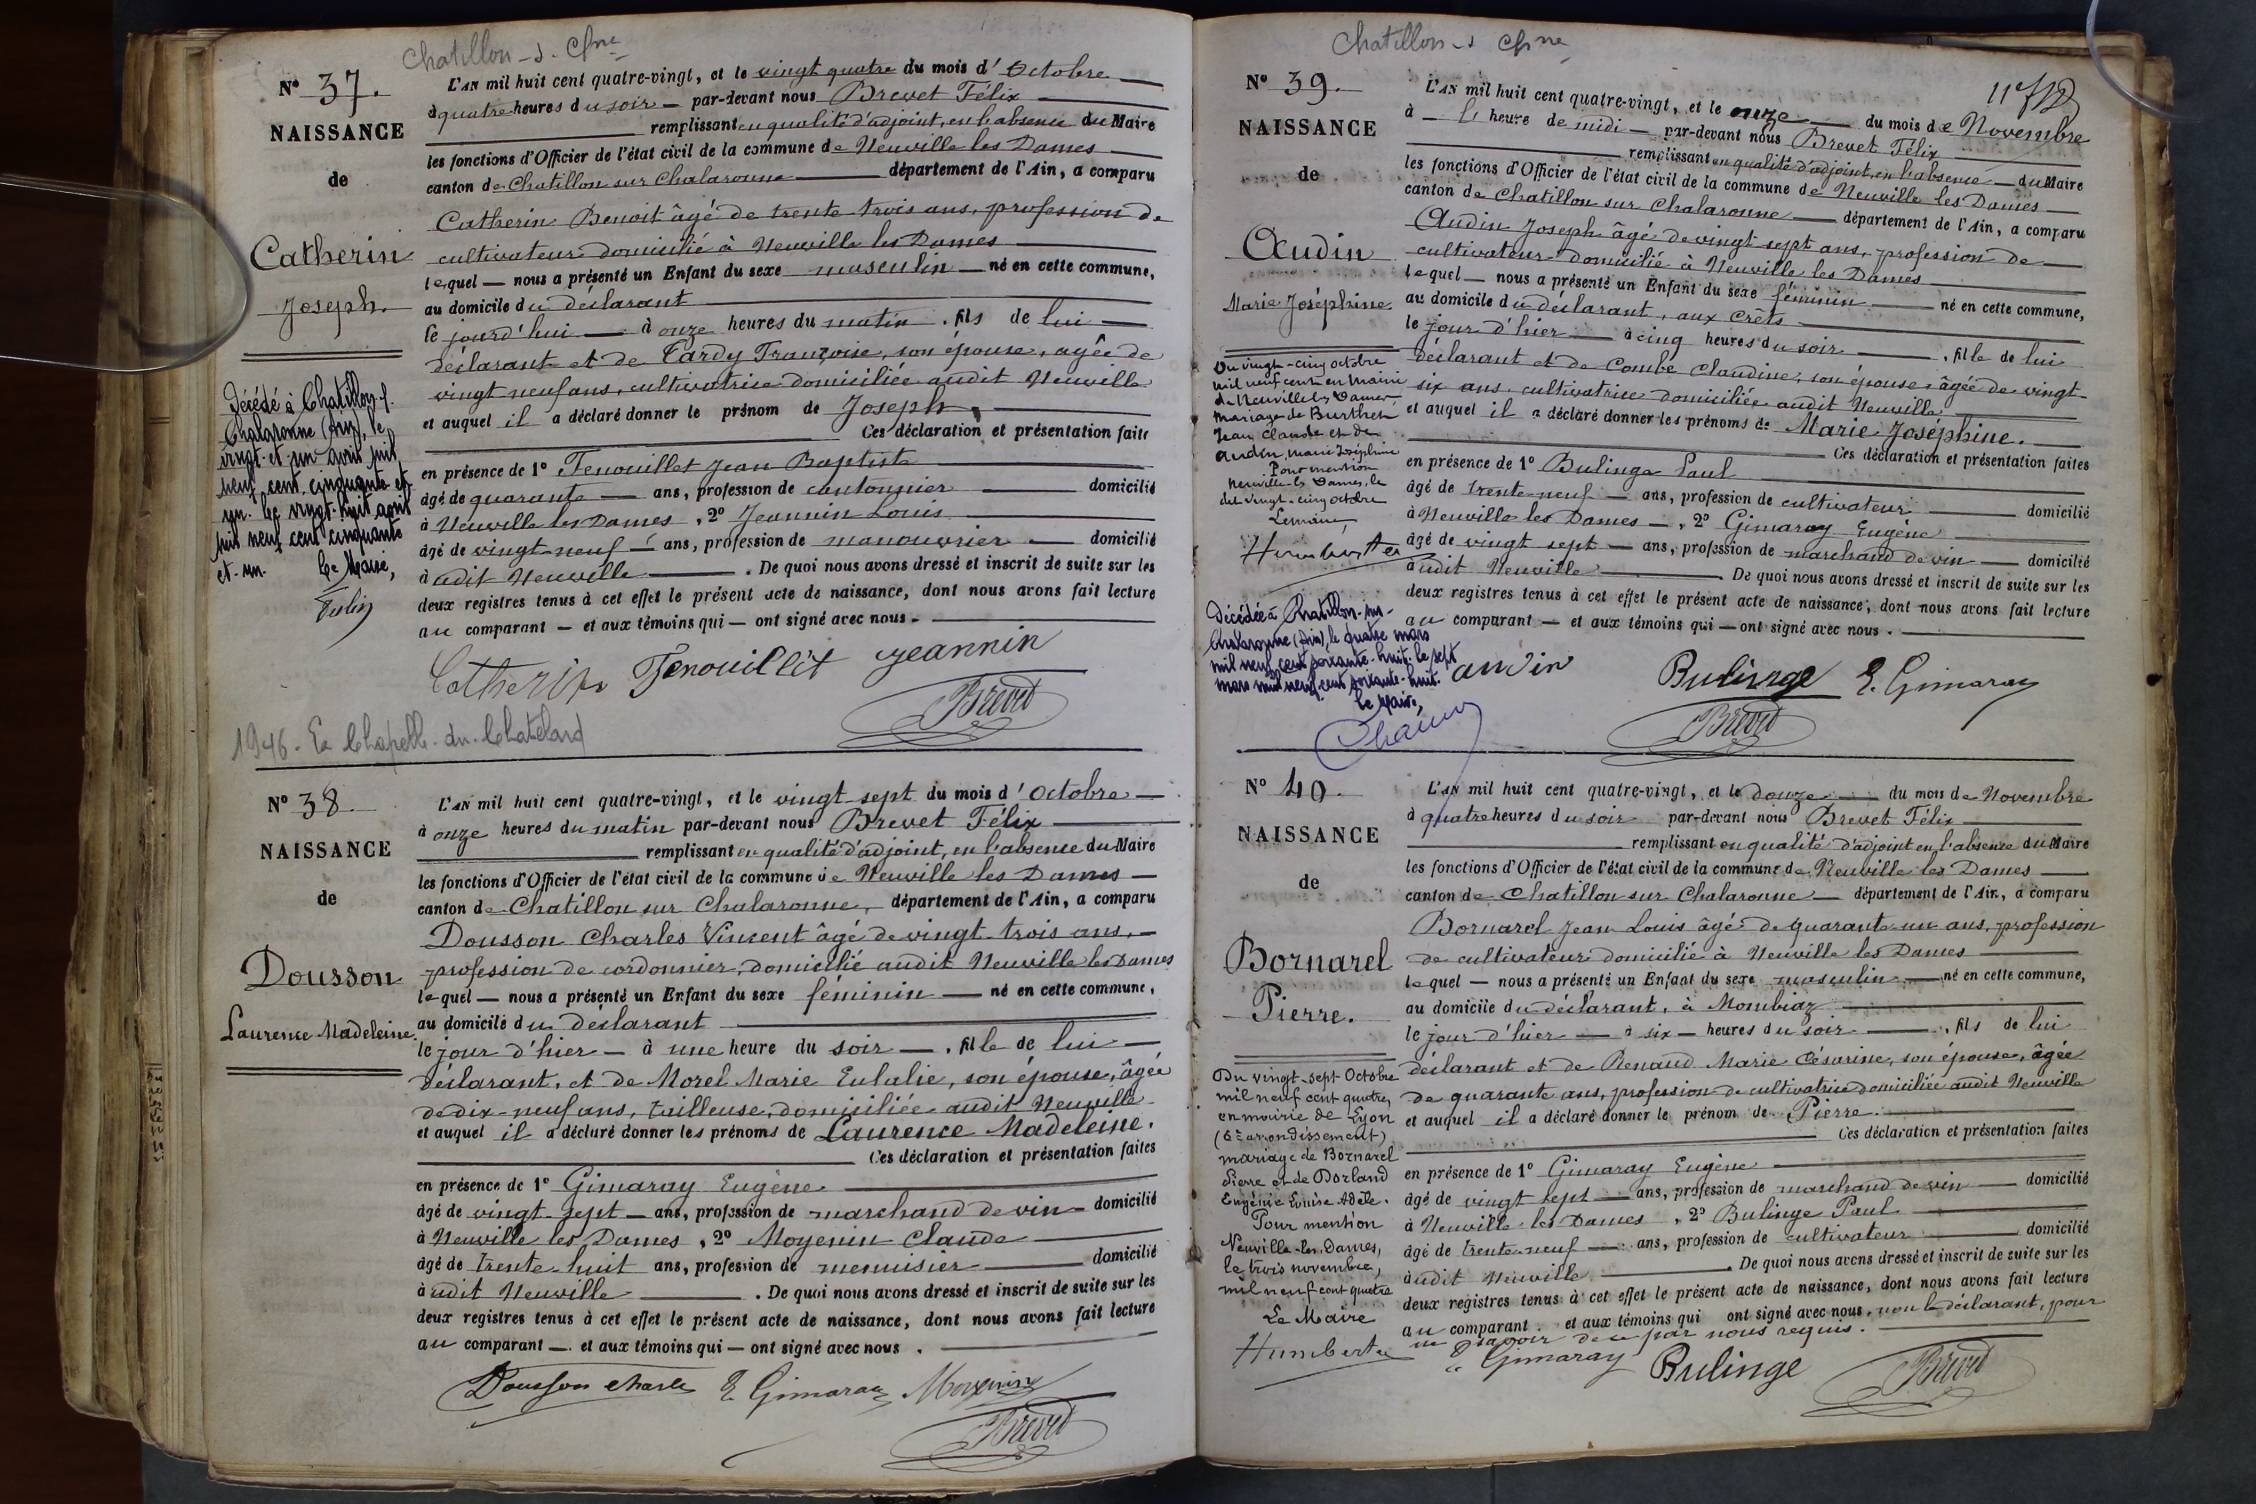 Chatillon-s-Chne
N° 37.
NAISSANCE
de
Catherin
Joseph.
L'AN mil huit cent quatre-vingt, et le vingt quatre du mois d'Octobre
à quatre heures du soir par-devant nous Brevet Félix
remplissant en qualité d'adjoint, en l'absence du Maire
les fonctions d'Officier de l'état civil de la commune de Neuville les Dames
canton de Chatillon sur Chalaronne département de l'Ain, a comparu
Catherin Benoit âgé de trente-trois ans, profession de
cultivateur domicilié à Neuville les Dames
lequel nous a présenté un Enfant du sexe masculin né en cette commune,
au domicile du déclarant
le jourd'hui à onze heures du matin, fils de lui
déclarant et de Tardy Françoise, son épouse, agée de
vingt neuf ans, cultivatrice domiciliée audit Neuville
et auquel il a déclaré donner le prénom de Joseph,
Ces déclaration et présentation faite
en présence de 1° Fenouillet Jean Baptiste
âgé de quarante ans, profession de cantonnier domicilié
à Neuville les Dames, 2° Jeannin Louis
âgé de vingt-neuf ans, profession de manouvrier domicilié
à udit Neuville. De quoi nous avons dressé et inscrit de suite sur les
deux registres tenus à cet effet le présent acte de naissance, dont nous avons fait lecture
au comparant et aux témoins qui ont signé avec nous.
Catherin Fenouillet Jeannin
Brevet
Décédé à Chatillon-s.
Chalaronne (Ain), le
vingt-et-un avril mil
neuf cent cinquante et
un. Le vingt-huit avril
mil neuf cent cinquante
et-un. Le Maire,
1946 - La Chapelle-du-Chatelard
N° 38.
NAISSANCE
de
Dousson
Laurence Madeleine.
L'AN mil huit cent quatre-vingt, et le vingt-sept du mois d'Octobre
à onze heures du matin par-devant nous Brevet Félix
remplissant en qualité d'adjoint, en l'absence du Maire
les fonctions d'Officier de l'état civil de la commune de Neuville les Dames
canton de Chatillon sur Chalaronne, département de l'Ain, a comparu
Dousson Charles Vincent âgé de vingt-trois ans,
profession de cordonnier, domicilié audit Neuville les Dames
lequel nous a présenté un Enfant du sexe féminin né en cette commune,
au domicile du déclarant
le jour d'hier à une heure du soir, fille de lui
déclarant, et de Morel Marie Eulalie, son épouse, âgée
de dix-neuf ans, tailleuse, domiciliée audit Neuville
et auquel il a déclaré donner les prénoms de Laurence Madeleine.
Ces déclaration et présentation faites
en présence de 1° Gimaray Eugène
âgé de vingt-sept ans, profession de marchand de vin domicilié
à Neuville les Dames, 2° Moyenin Claude
âgé de trente-huit ans, profession de menuisier domicilié
à udit Neuville. De quoi nous avons dressé et inscrit de suite sur les
deux registres tenus à cet effet le présent acte de naissance, dont nous avons fait lecture
au comparant et aux témoins qui ont signé avec nous.
Dousson Charles E. Gimaray Moyenin
Brevet
Chatillon-s Chne
N° 39.
NAISSANCE
de
Audin
Marie Joséphine
L'AN mil huit cent quatre-vingt, et le onze du mois de Novembre
à l' heure de midi par-devant nous Brevet Félix
remplissant en qualité d'adjoint, en l'absence du Maire
les fonctions d'Officier de l'état civil de la commune de Neuville les Dames
canton de Chatillon sur Chalaronne département de l'Ain, a comparu
Audin Joseph âgé de vingt sept ans, profession de
cultivateur domicilié à Neuville les Dames
lequel nous a présenté un Enfant du sexe féminin né en cette commune,
au domicile du déclarant, aux Crêts
le jour d'hier à cinq heures du soir, fille de lui
déclarant et de Combe Claudine, son épouse, âgée de vingt-
six ans, cultivatrice domiciliée audit Neuville
et auquel il a déclaré donner les prénoms de Marie Joséphine.
Ces déclaration et présentation faites
en présence de 1° Bulinge Paul
âgé de trente-neuf ans, profession de cultivateur domicilié
à Neuville les Dames, 2° Gimaray Eugène
âgé de vingt sept ans, profession de marchand de vin domicilié
à udit Neuville. De quoi nous avons dressé et inscrit de suite sur les
deux registres tenus à cet effet le présent acte de naissance, dont nous avons fait lecture
au comparant et aux témoins qui ont signé avec nous.
audin Bulinge E. Gimaray
Brevet
Du vingt-cinq octobre
mil neuf cent en Mairie
de Neuville les Dames,
mariage de Burthier
Jean Claude et de
Audin Marie Joséphine
Pour mention
Neuville-les-Dames, le
dit vingt-cinq octobre
Le maire,
Humbert
Décédée à Chatillon-sur-
Chalaronne (Ain), le quatre mars
mil neuf cent soixante-huit. le sept
mars mil neuf cent soixante-huit.
Le Maire,
N° 40.
NAISSANCE
de
Bornarel
Pierre.
L'AN mil huit cent quatre-vingt, et le douze du mois de Novembre
à quatre heures du soir par-devant nous Brevet Félix
remplissant en qualité d'adjoint en l'absence du Maire
les fonctions d'Officier de l'état civil de la commune de Neuville les Dames
canton de Chatillon sur Chalaronne département de l'Ain, a comparu
Bornarel Jean Louis âgé de quarante-un ans, profession
de cultivateur domicilié à Neuville les Dames
lequel nous a présenté un Enfant du sexe masculin né en cette commune,
au domicile du déclarant, à Mombiaz
le jour d'hier à six heures du soir, fils de lui
déclarant et de Renaud Marie Césarine, son épouse, âgée
de quarante ans, profession de cultivatrice domiciliée audit Neuville
et auquel il a déclaré donner le prénom de Pierre.
Ces déclaration et présentation faites
en présence de 1° Gimaray Eugène
âgé de vingt sept ans, profession de marchand de vin domicilié
à Neuville les Dames, 2° Bulinge Paul
âgé de trente-neuf ans, profession de cultivateur domicilié
à udit Neuville. De quoi nous avons dressé et inscrit de suite sur les
deux registres tenus à cet effet le présent acte de naissance, dont nous avons fait lecture
au comparant et aux témoins qui ont signé avec nous, non le déclarant, pour
ne savoir de ce par nous requis.
E. Gimaray Bulinge
Brevet
Du vingt-sept Octobre
mil neuf cent quatre,
en mairie de Lyon
(6e arrondissement)
mariage de Bornarel
Pierre et de Dorland
Eugénie Louise Adèle.
Pour mention
Neuville-les-Dames,
le trois novembre,
mil neuf cent quatre
Le Maire
Humbert